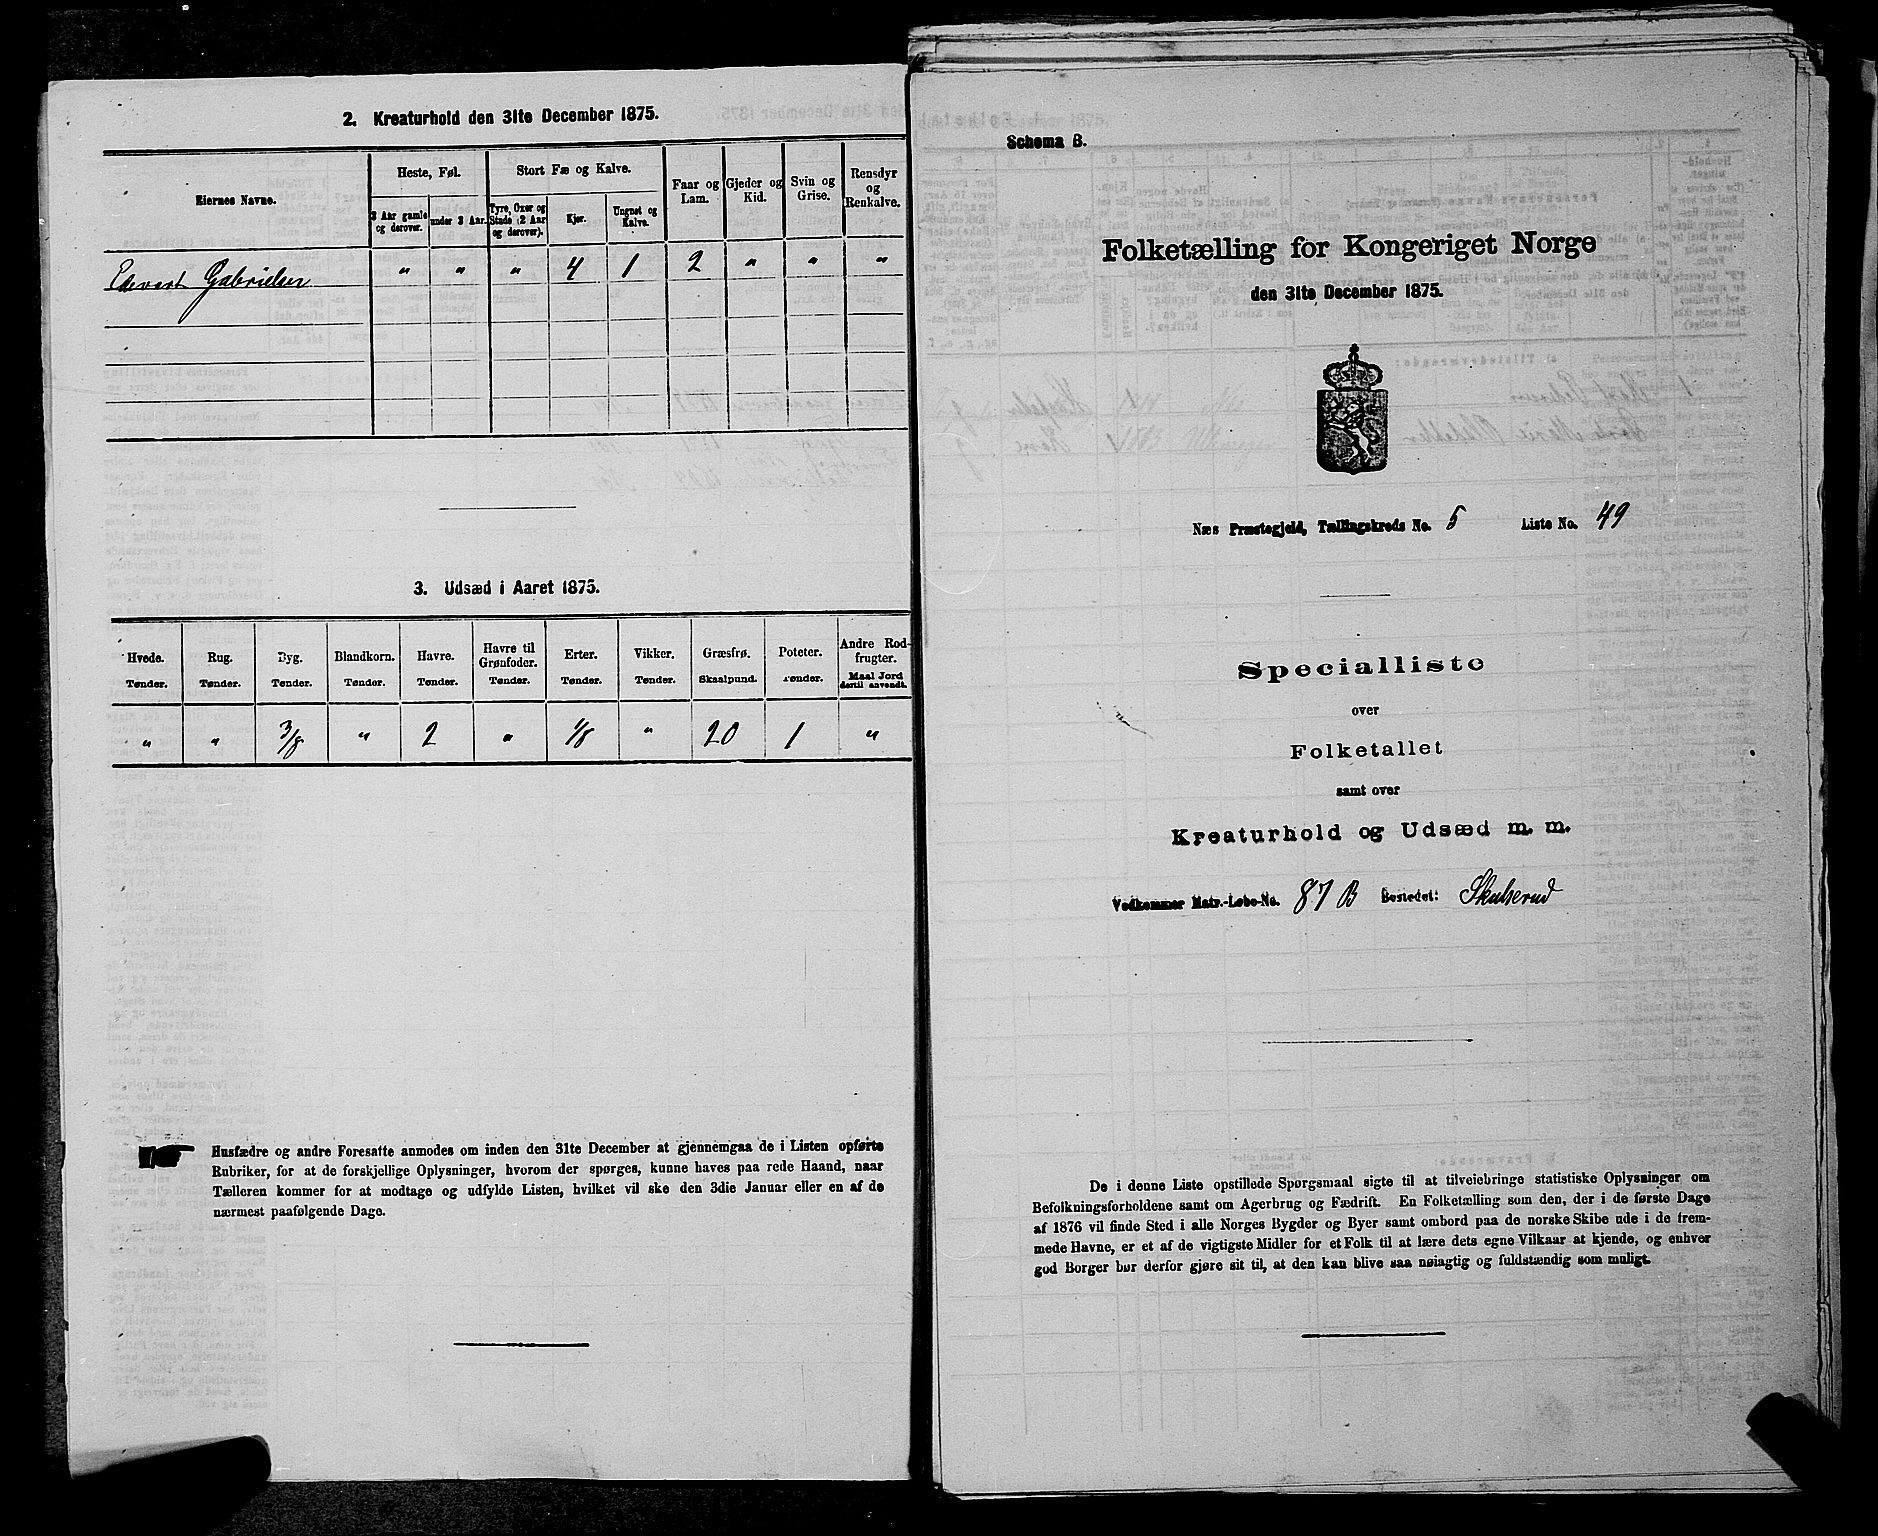 2. Kreaturhold den 31te December 1875.
Eiernes Navne.
Heste, Føl.
Stort Fæ og Kalve.
Faar og Lam.
Gjeder og Kid.
Svin og Grise.
Rensdyr og Renkalve.
3 Aar gamle og derover.
under 3 Aar.
Tyre, Oxer og Stude (2 Aar og derover).
Kjør.
Ungnøt og Kalve.
Edevart Gabrielsen " " " 4 1 2 " " "
3. Udsæd i Aaret 1875.
Hvede. Rug. Byg. Blandkorn. Havre. Havre til Grønfoder. Erter. Vikker. Græsfrø. Poteter. Andre Rodfrugter.
Tønder. Tønder. Tønder. Tønder. Tønder. Tønder. Tønder. Tønder. Skaalpund. Tønder. Maal Jord dertil anvendt.
" " 3/8 " 2 " 1/8 " 20 1 "
Husfædre og andre Foresatte anmodes om inden den 31te December at gjennemgaa de i Listen opførte
Rubriker, for at de forskjellige Oplysninger, hvorom der spørges, kunne haves paa rede Haand, naar
Tælleren kommer for at modtage og udfylde Listen, hvilket vil ske den 3die Januar eller en af de
nærmest paafølgende Dage.
Schema B.
Folketælling for Kongeriget Norge
den 31te December 1875.
Næs Præstegjeld, Tællingskreds No. 5 Liste No. 49
Specialliste
over
Folketallet
samt over
Kreaturhold og Udsæd m. m.
Vedkommer Matr.-Løbe-No. 87 B Bostedet: Skulserud
De i denne Liste opstillede Spørgsmaal sigte til at tilveiebringe statistiske Oplysninger om
Befolkningsforholdene samt om Agerbrug og Fædrift. En Folketælling som den, der i de første Dage
af 1876 vil finde Sted i alle Norges Bygder og Byer samt ombord paa de norske Skibe ude i de frem-
mede Havne, er et af de vigtigste Midler for et Folk til at lære dets egne Vilkaar at kjende, og enhver
god Borger bør derfor gjøre sit til, at den kan blive saa nøiagtig og fuldstændig som muligt.